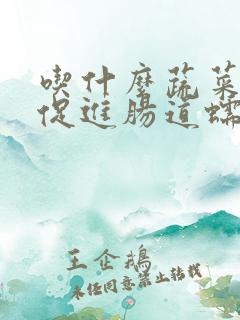 喫什麼蔬菜
促進腸道蠕
王企鵝
未經同意禁止轉載